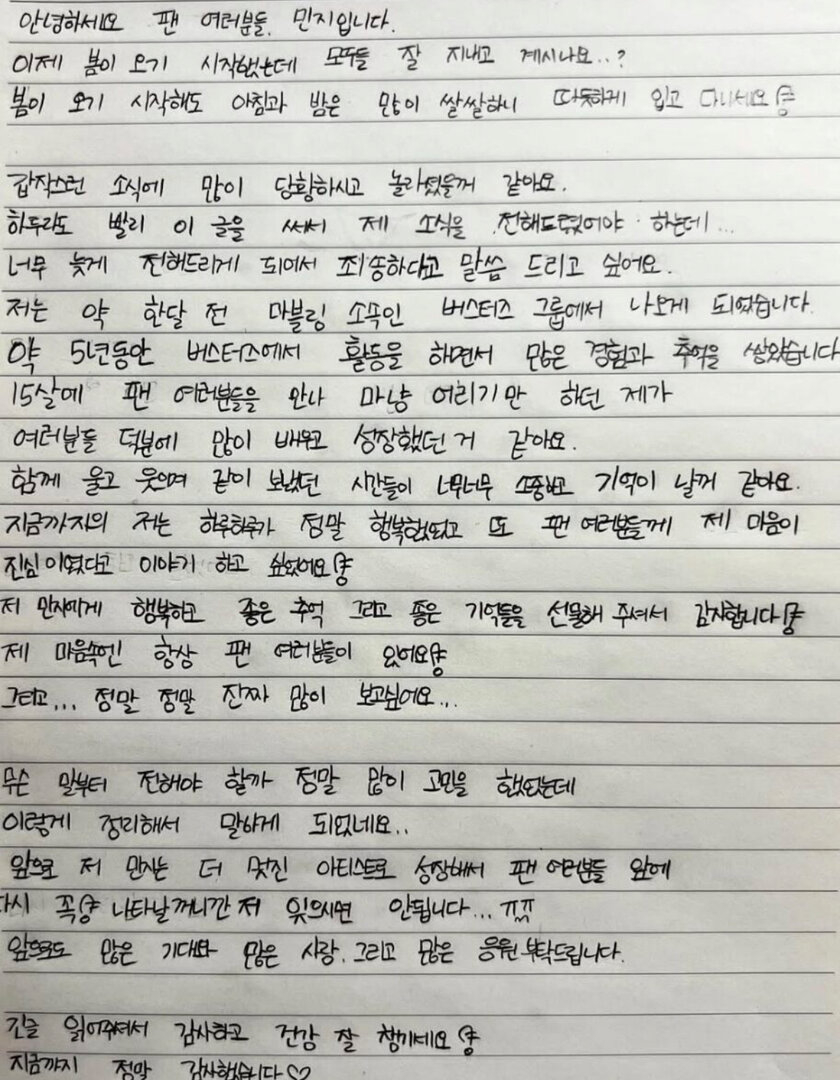 안녕하세요 팬 여러분들, 민지입니다.
이제 봄이 오기 시작했는데 모두들 잘 지내고 계시나요..?
봄이 오기 시작해도 아침과 밤은 많이 쌀쌀하니 따듯하게 입고 다니세요
갑작스런 소식에 많이 당황하시고 놀라셨을꺼 같아요.
하루라도 빨리 이 글을 써서 제 소식을 전해드렸어야 하는데...
너무 늦게 전해드리게 되어서 죄송하다고 말씀 드리고 싶어요.
저는 약 한달 전 마블링 소속인 버스터즈 그룹에서 나오게 되었습니다.
약 5년동안 버스터즈에서 활동을 하면서 많은 경험과 추억을 쌓았습니다
15살에 팬 여러분들을 만나 마냥 어리기만 하던 제가
여러분들 덕분에 많이 배우고 성장했던거 같아요.
함께 울고 웃으며 같이 보냈던 시간들이 너무너무 소중하고 기억이 날꺼 같아요.
지금까지의 저는 하루하루가 정말 행복했었고 또 팬 여러분들께 제 마음이
진심이였다고 이야기 하고 싶었어요
저 민지에게 행복하고 좋은 추억 그리고 좋은 기억들을 선물해 주셔서 감사합니다
제 마음속엔 항상 팬 여러분들이 있어요
그리고... 정말 정말 진짜 많이 보고싶어요...
무슨 말부터 전해야 할까 정말 많이 고민을 했었는데
이렇게 정리해서 말하게 되었네요..
앞으로 저 민지는 더 멋진 아티스트로 성장해서 팬 여러분들 앞에
다시 꼭 나타날꺼니깐 저 잊으시면 안됩니다...ㅠㅠ
앞으로도 많은 기대와 많은 사랑, 그리고 많은 응원 부탁드립니다.
긴글 읽어주셔서 감사하고 건강 잘 챙기세요
지금까지 정말 감사했습니다♡